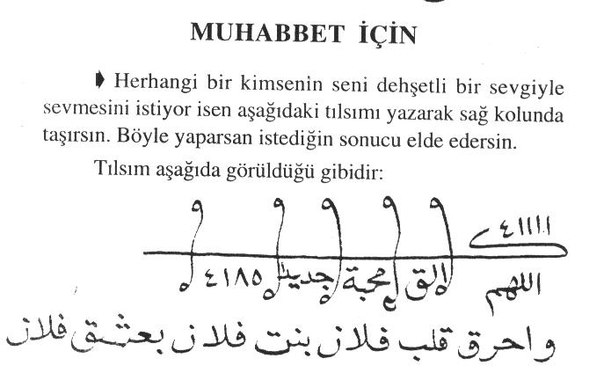 MUHABBET İÇİN
Herhangi bir kimsenin seni dehşetli bir sevgiyle
sevmesini istiyor isen aşağıdaki tılsımı yazarak sağ kolunda
taşırsın. Böyle yaparsan istediğin sonucu elde edersin.
Tılsım aşağıda görüldüğü gibidir:
اللهم الق محبة ٤١٨٥
واحرق قلب فلان بنت فلان بعشق فلان